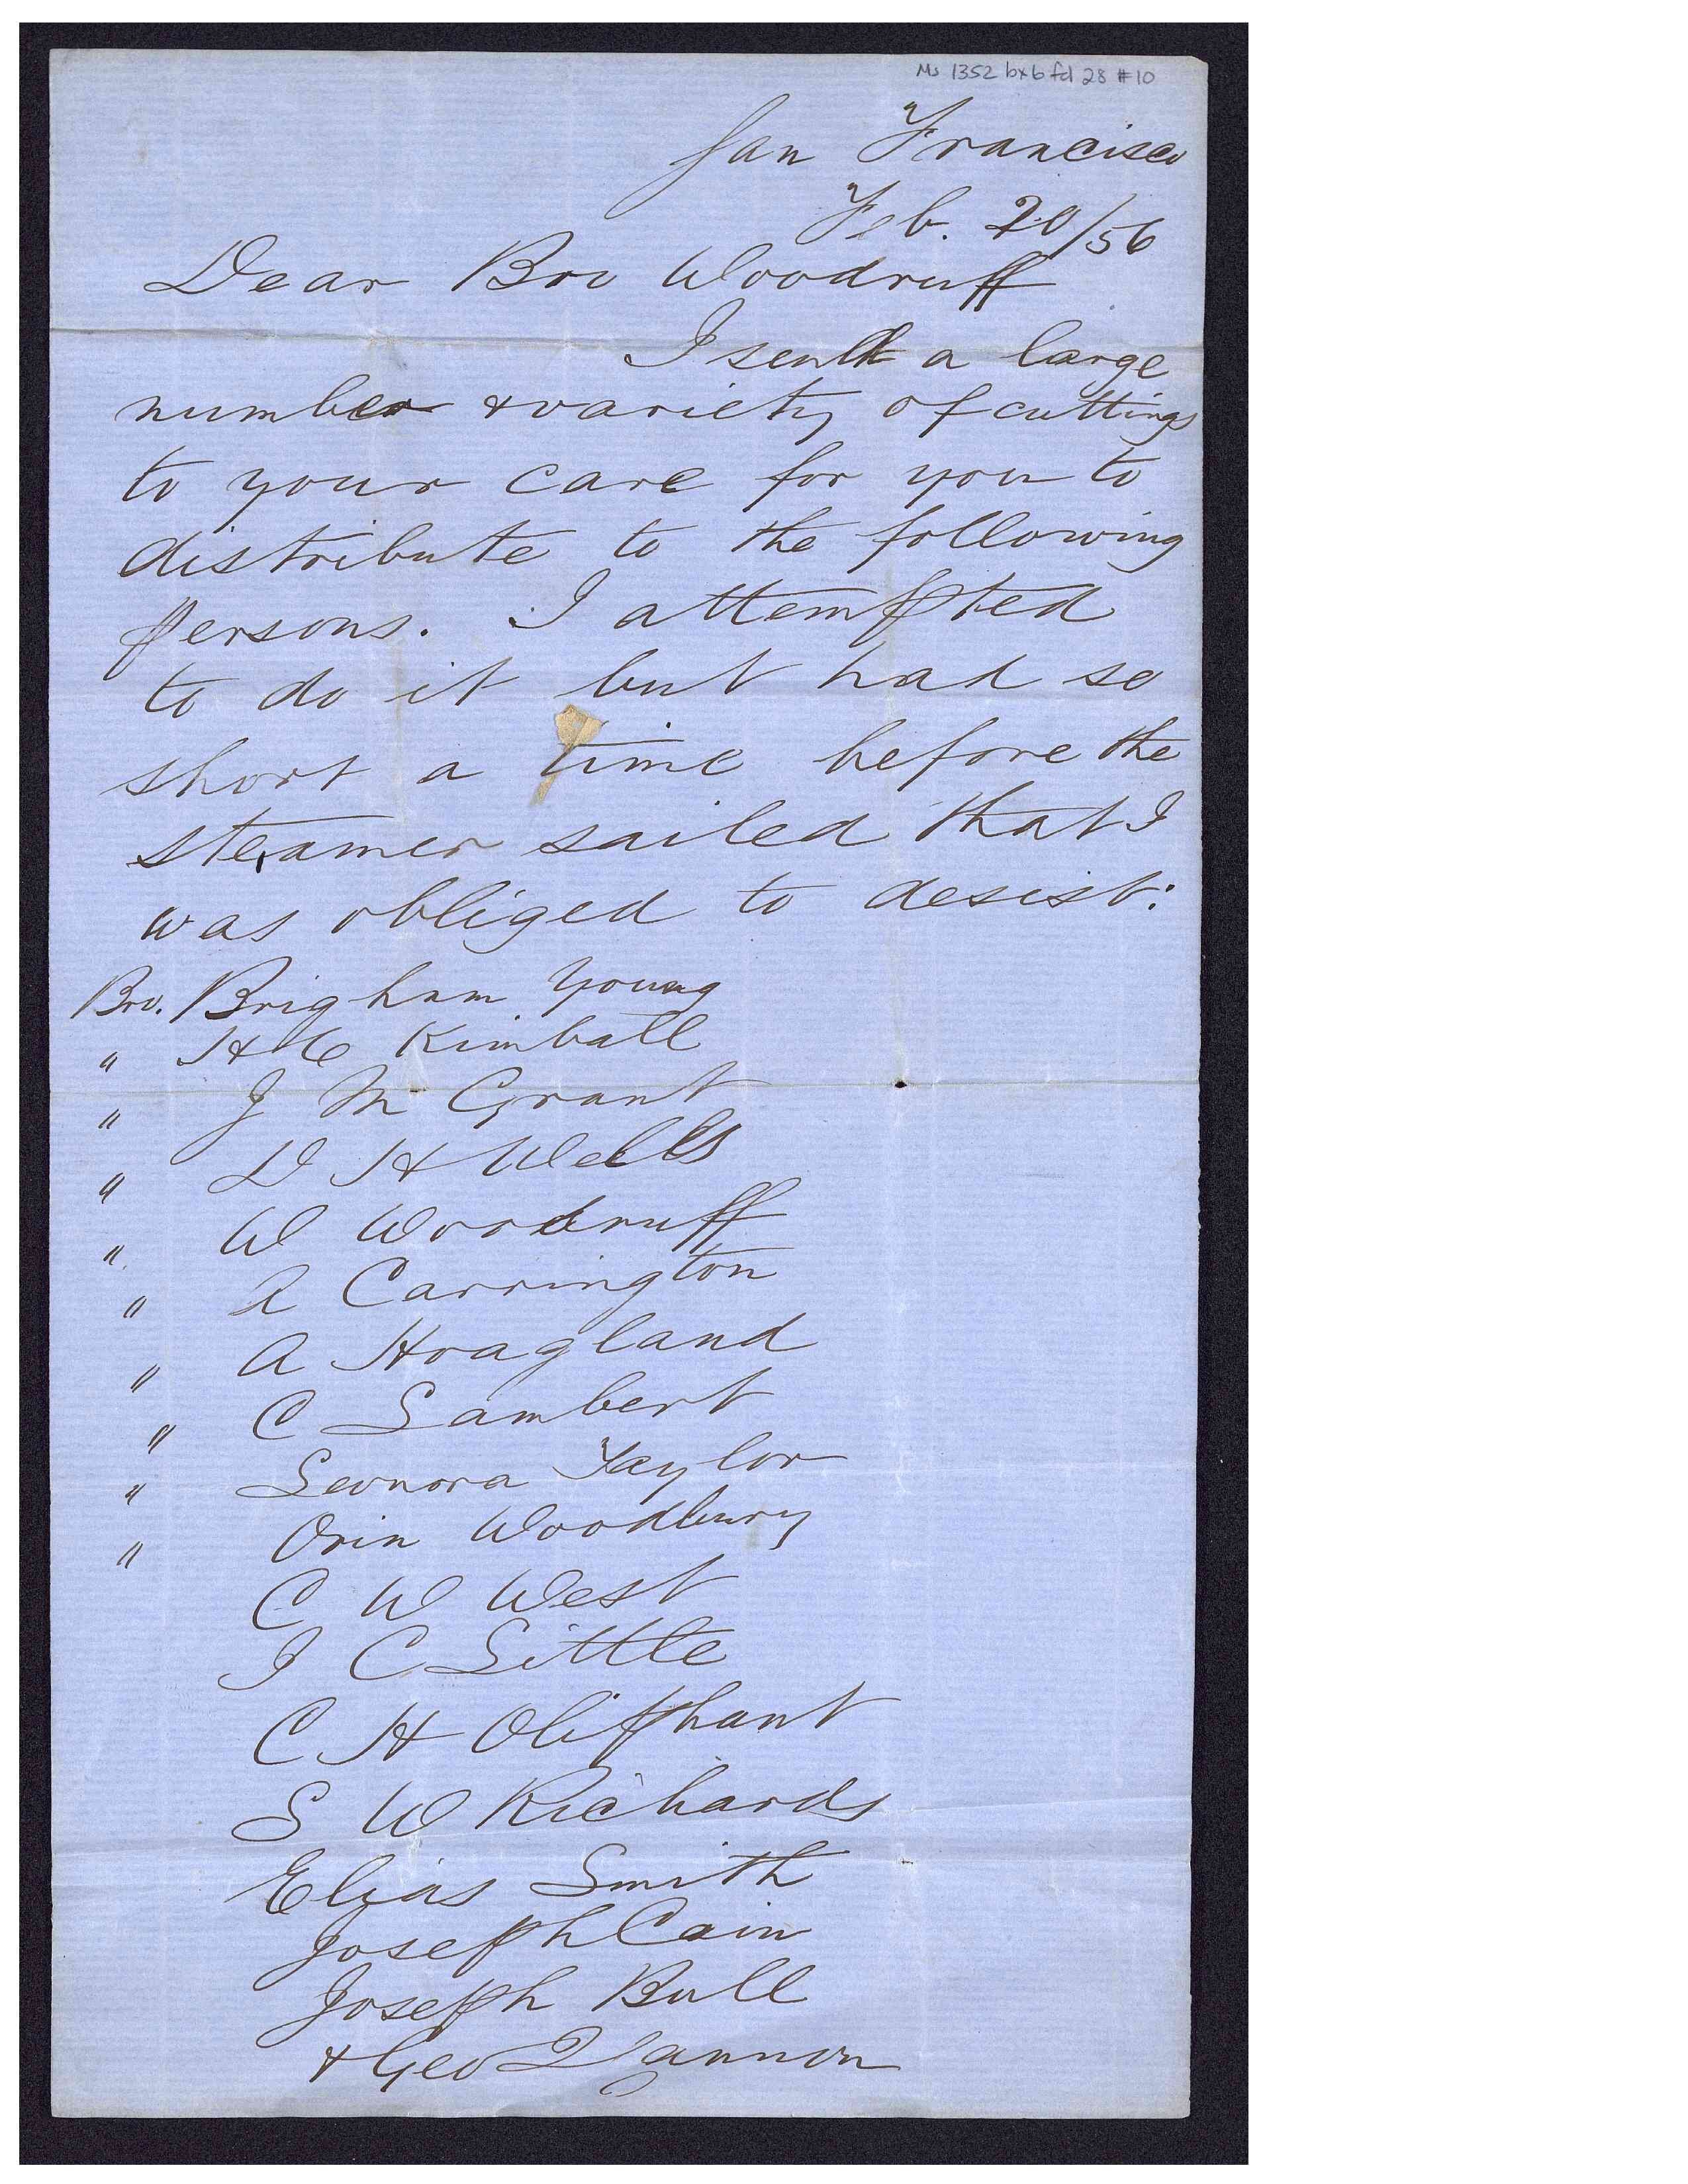 Ms 1352 bx 6 fd 28 #10
San Francisco
Feb. 20/56
Dear Bro Woodruff
I sent a large
number & variety of cuttings
to your care for you to
distribute to the following
persons. I attempted
to do it but had so
short a time before the
steamer sailed that I
was obliged to desist:
Bro. Brigham Young
" H C Kimball
" J M Grant
" D H Wells
" W Woodruff
" A Carrington
" A Hoagland
" C Lambert
" Leonora Taylor
" Orin Woodbury
C W West
J C Little
C H Oliphant
S W Richards
Elias Smith
Joseph Cain
Joseph Bull
& Geo Q Cannon